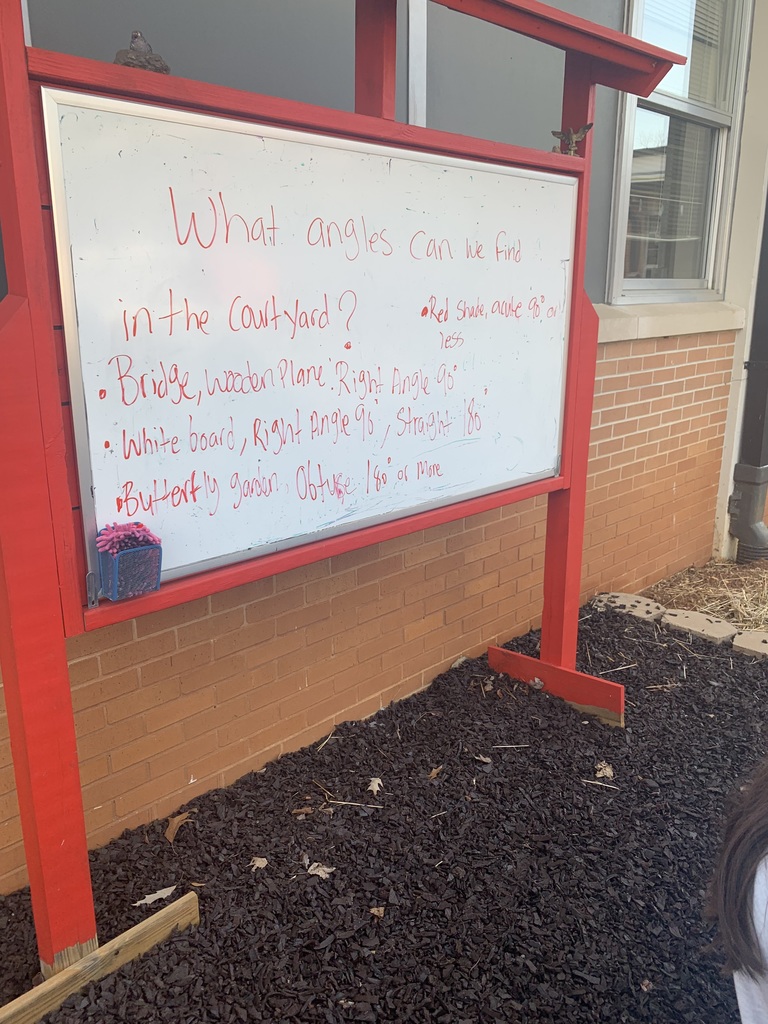 What angles can we find
in the Courtyard?
•Red Shade, acute 90° or
less
• Bridge, Wooden Plane: Right Angle 90°
• White board, Right Angle 90°, Straight 180°
•Butterfly garden, Obtuse 180° or More